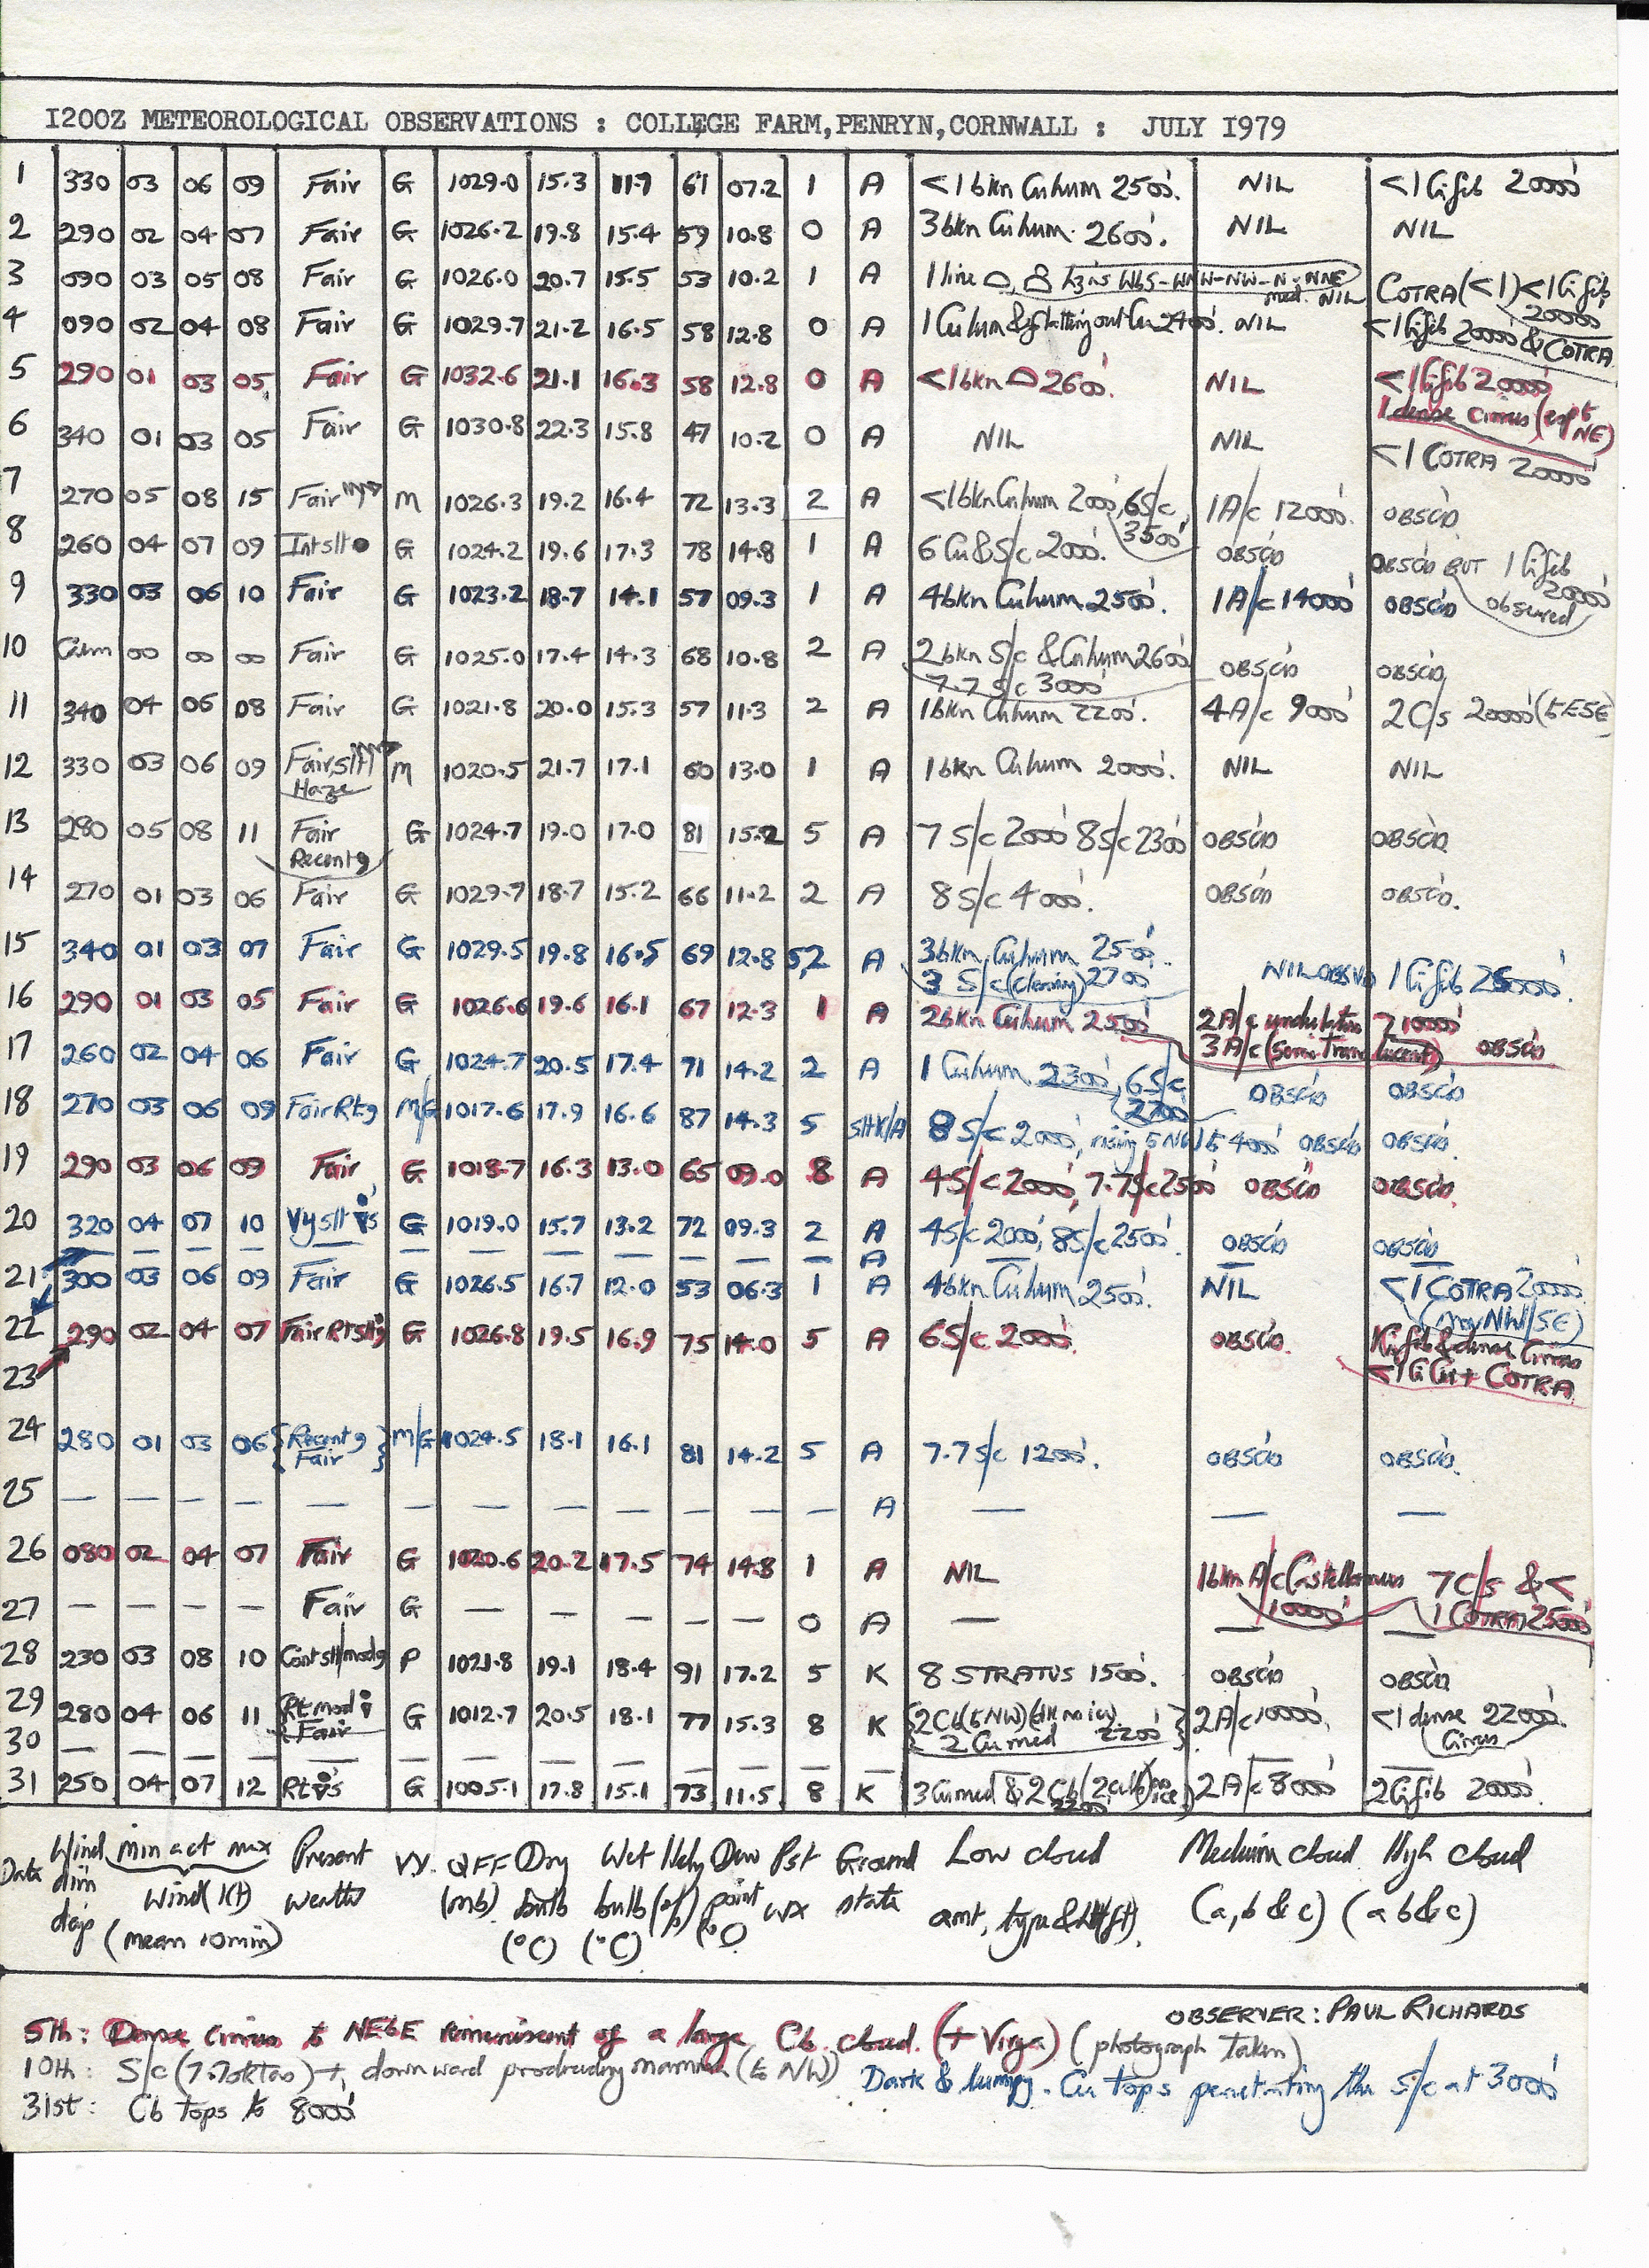 1200Z METEOROLOGICAL OBSERVATIONS : COLLEGE FARM,PENRYN,CORNWALL : JULY 1979
1 330 03 06 09 Fair G 1029.0 15.3 11.9 61 07.2 1 A <1bkn Cuhum 2500'. NIL <1Cifib 20000'
2 290 02 04 07 Fair G 1026.2 19.8 15.4 59 10.8 0 A 3bkn Cuhum. 2600'. NIL NIL
3 090 03 05 08 Fair G 1026.0 20.7 15.5 53 10.2 1 A 1 line WbS-WNW-NW-N-NNE med. NIL COTRA(<1)<1Cifib 20000'
4 090 02 04 08 Fair G 1029.7 21.2 16.5 58 12.8 0 A 1Cuhum&flatting out Cu 2400'. NIL <1Cifib 20000'&COTRA
5 290 01 03 05 Fair G 1032.6 21.1 16.3 58 12.8 0 A <1bkn 2600'. NIL <1Cifib 20000'
1 dense cirrus (NE)
6 340 01 03 05 Fair G 1030.8 22.3 15.8 47 10.2 0 A NIL NIL <1 COTRA 20000'
7 270 05 08 15 Fair M 1026.3 19.2 16.4 72 13.3 2 A <1bkn Cuhum 2000', 6S/c 3500' 1A/c 12000'. OBSC'D
8 260 04 07 09 Intslt G 1024.2 19.6 17.3 78 14.8 1 A 6 Cu&S/c 2000'. OBSC'D OBSC'D BUT 1 Cifib 20000' observed
9 330 03 06 10 Fair G 1023.2 18.7 14.1 57 09.3 1 A 4bkn Cuhum 2500'. 1A/c 14000' OBSC'D
10 Calm 00 00 00 Fair G 1025.0 17.4 14.3 68 10.8 2 A 2bkn S/c &Cuhum 2600' OBSC'D OBSC'D
7.7 S/c 3000'
11 340 04 06 08 Fair G 1021.8 20.0 15.3 57 11.3 2 A 1bkn Cuhum 2200'. 4A/c 9000' 2C/s 20000'(to ESE)
12 330 03 06 09 Fair,slt Haze M 1020.5 21.7 17.1 60 13.0 1 A 1bkn Cuhum 2000'. NIL NIL
13 280 05 08 11 Fair Recent G 1024.7 19.0 17.0 81 15.2 5 A 7 S/c 2000' 8S/c 2300' OBSC'D OBSC'D
14 270 01 03 06 Fair G 1029.7 18.7 15.2 66 11.2 2 A 8 S/c 4000'. OBSC'D OBSC'D.
15 340 01 03 07 Fair G 1029.5 19.8 16.5 69 12.8 5,2 A 3bkn Cuhum 2500'. NIL OBSVD 1Cifib 25000'.
3 S/c(clearing)2700'
16 290 01 03 05 Fair G 1026.6 19.6 16.1 67 12.3 1 A 2bkn Cuhum 2500' 2A/c undulatus 10000'
3A/c (some translucent) OBSC'D
17 260 02 04 06 Fair G 1024.7 20.5 17.4 71 14.2 2 A 1 Cuhum 2300', 6S/c 2700' OBSC'D OBSC'D
18 270 03 06 09 FairRt M/G 1017.6 17.9 16.6 87 14.3 5 sltK/A 8 S/c 2000', rising to NW to 4000' OBSC'D OBSC'D.
19 290 03 06 09 Fair G 1018.7 16.3 13.0 65 09.0 8 A 4S/c 2000', 7.7S/c 2500' OBSC'D OBSC'D.
20 320 04 07 10 Vyslt G 1019.0 15.7 13.2 72 09.3 2 A 4S/c 2000', 8S/c 2500'. OBSC'D OBSC'D
— — — — — — — — — — — A —
21 300 03 06 09 Fair G 1026.5 16.7 12.0 53 06.3 1 A 4bkn Cuhum 2500'. NIL <1 COTRA 20000'
(mov NW/SE)
22 290 02 04 07 Fair G 1026.8 19.5 16.9 75 14.0 5 A 6S/c 2000'. OBSC'D. 1Cifib&dense Cirrus
23 <1CiCu+ COTRA
24 280 01 03 06 {Recent Fair} M/G 1024.5 18.1 16.1 81 14.2 5 A 7.7 S/c 1200'. OBSC'D OBSC'D.
25 — — — — — — — — — — — — A — — —
26 080 02 04 07 Fair G 1020.6 20.2 17.5 74 14.8 1 A NIL 1bkn A/c Castellanus 10000' 7C/s &< 1 COTRA 25000'
27 — — — — Fair G — — — — — 0 A — — —
28 230 03 08 10 Contslt/mod P 1021.8 19.1 18.4 91 17.2 5 K 8 STRATUS 1500'. OBSC'D OBSC'D
29 280 04 06 11 Rtmod Fair G 1012.7 20.5 18.1 77 15.3 8 K {2Cb(to NW) 2 Cu med 2200'} 2A/c 10000'. <1dense Cirrus 22000'.
30 — — — — — — — — — — — — — — —
31 250 04 07 12 Rt's G 1005.1 17.8 15.1 73 11.5 8 K 3Cumed & 2Cb 2200' 2A/c 8000' 2Cifib 20000'.
Date Wind dirn degs min act max Wind (Kt) (mean 10min) Present weather Vy. QFF (mb) Dry bulb (°C) Wet bulb (°C) Hdy (%) Dew point (°C) Pst wx Ground state Low cloud amt, type & ht(ft). Medium cloud (a,b & c) High cloud (a b&c)
OBSERVER: PAUL RICHARDS
5th: Dense cirrus to NEbE reminiscent of a large Cb cloud. (+ Virga) (photograph taken)
10th: S/c (7.7oktas) + downward protruding mamma (to NW) Dark & lumpy. Cu tops penetrating the S/c at 3000'
31st: Cb tops to 8000'